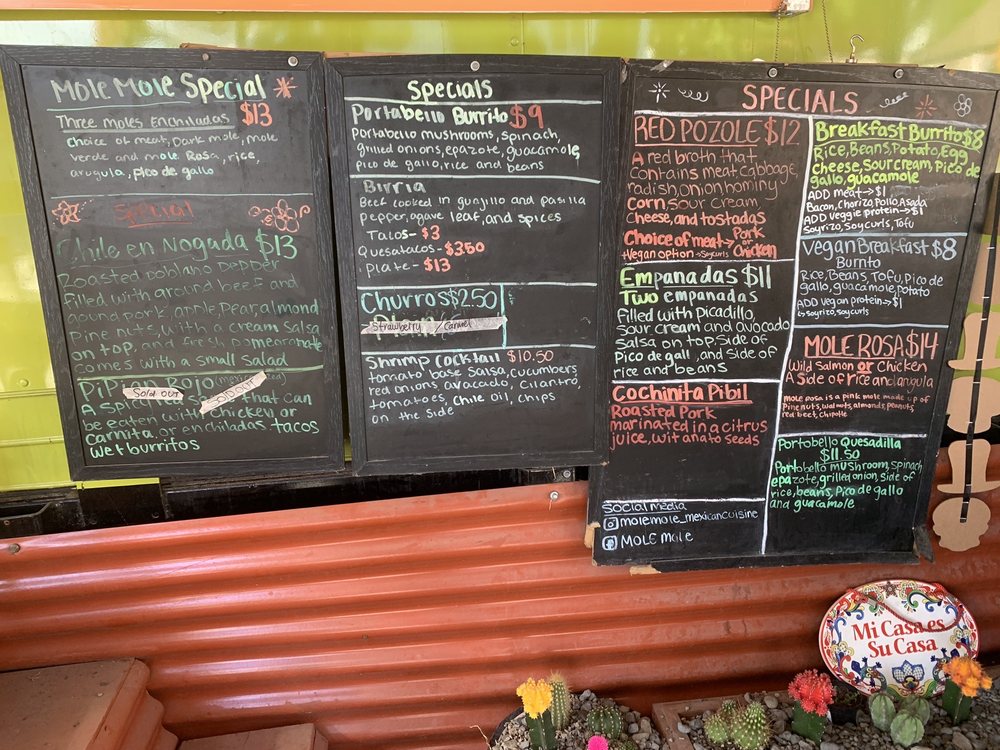 Mole Mole Special
Three moles Enchiladas $13
Choice of meat, Dark mole, mole
verde and mole Rosa, rice,
arugula, pico de gallo
Special
Chile en Nogada $13
Roasted poblano pepper
filled with ground beef and
gound pork, apple, pear, almond
Pine nuts, with a cream salsa
on top, and fresh pomegranate
comes with a small salad
PiPian Rojo
Sold out
SOLD OUT
A spicy that can
be eaten with chicken or
carnita, or enchiladas tacos
wet burritos
Specials
Portabello Burrito $9
Portabello mushrooms, spinach,
grilled onions, epazote, guacamole,
pico de gallo, rice and beans
Birria
Beef cooked in guajillo and pasilla
pepper, agave leaf, and spices
Tacos- $3
Quesatacos- $3.50
Plate- $13
Churros $2.50
Strawberry / Caramel
Shrimp cocktail $10.50
tomato base salsa, cucumbers
red onions avacado, cilantro,
tomatoes, chile oil, chips
on the side
SPECIALS
RED POZOLE $12
A red broth that
contains meat, cabbage,
radish, onion, hominy
corn, sour cream
cheese, and tostadas
Choice of meat→ Pork or Chicken
+Vegan option→Soycurls
Empanadas $11
Two empanadas
filled with picadillo,
sour cream and avocado
salsa on top. side of
Pico de gall, and side of
rice and beans
Cochinita Pibil
Roasted Pork
marinated in a citrus
juice, wit anato seeds
Social media
molemole_mexicancuisine
MOLE mole
Breakfast Burrito $8
Rice, Beans, Potato, Egg
cheese, sour cream, Pico de
gallo, guacamole
ADD meat→$1
Bacon, Chorizo, Pollo, Asada
ADD Veggie protein→$1
Soyrizo, soy curls, Tofu
Vegan Breakfast $8
Burrito
Rice, Beans, Tofu, Pico de
gallo, guacamole, Potato
ADD vegan protein→$1
↳Soyrizo, soycurls
MOLE ROSA $14
Wild Salmon or Chicken
A Side of rice and arugula
mole rosa is a pink mole made up of
Pine nuts, walnuts, almonds, peanuts,
red beet, chipotle
Portobello Quesadilla
$11.50
Portobello mushroom, spinach
epazote, grilled onion, side of
rice, beans, Pico de gallo
and guacamole
Mi Casa es
Su Casa